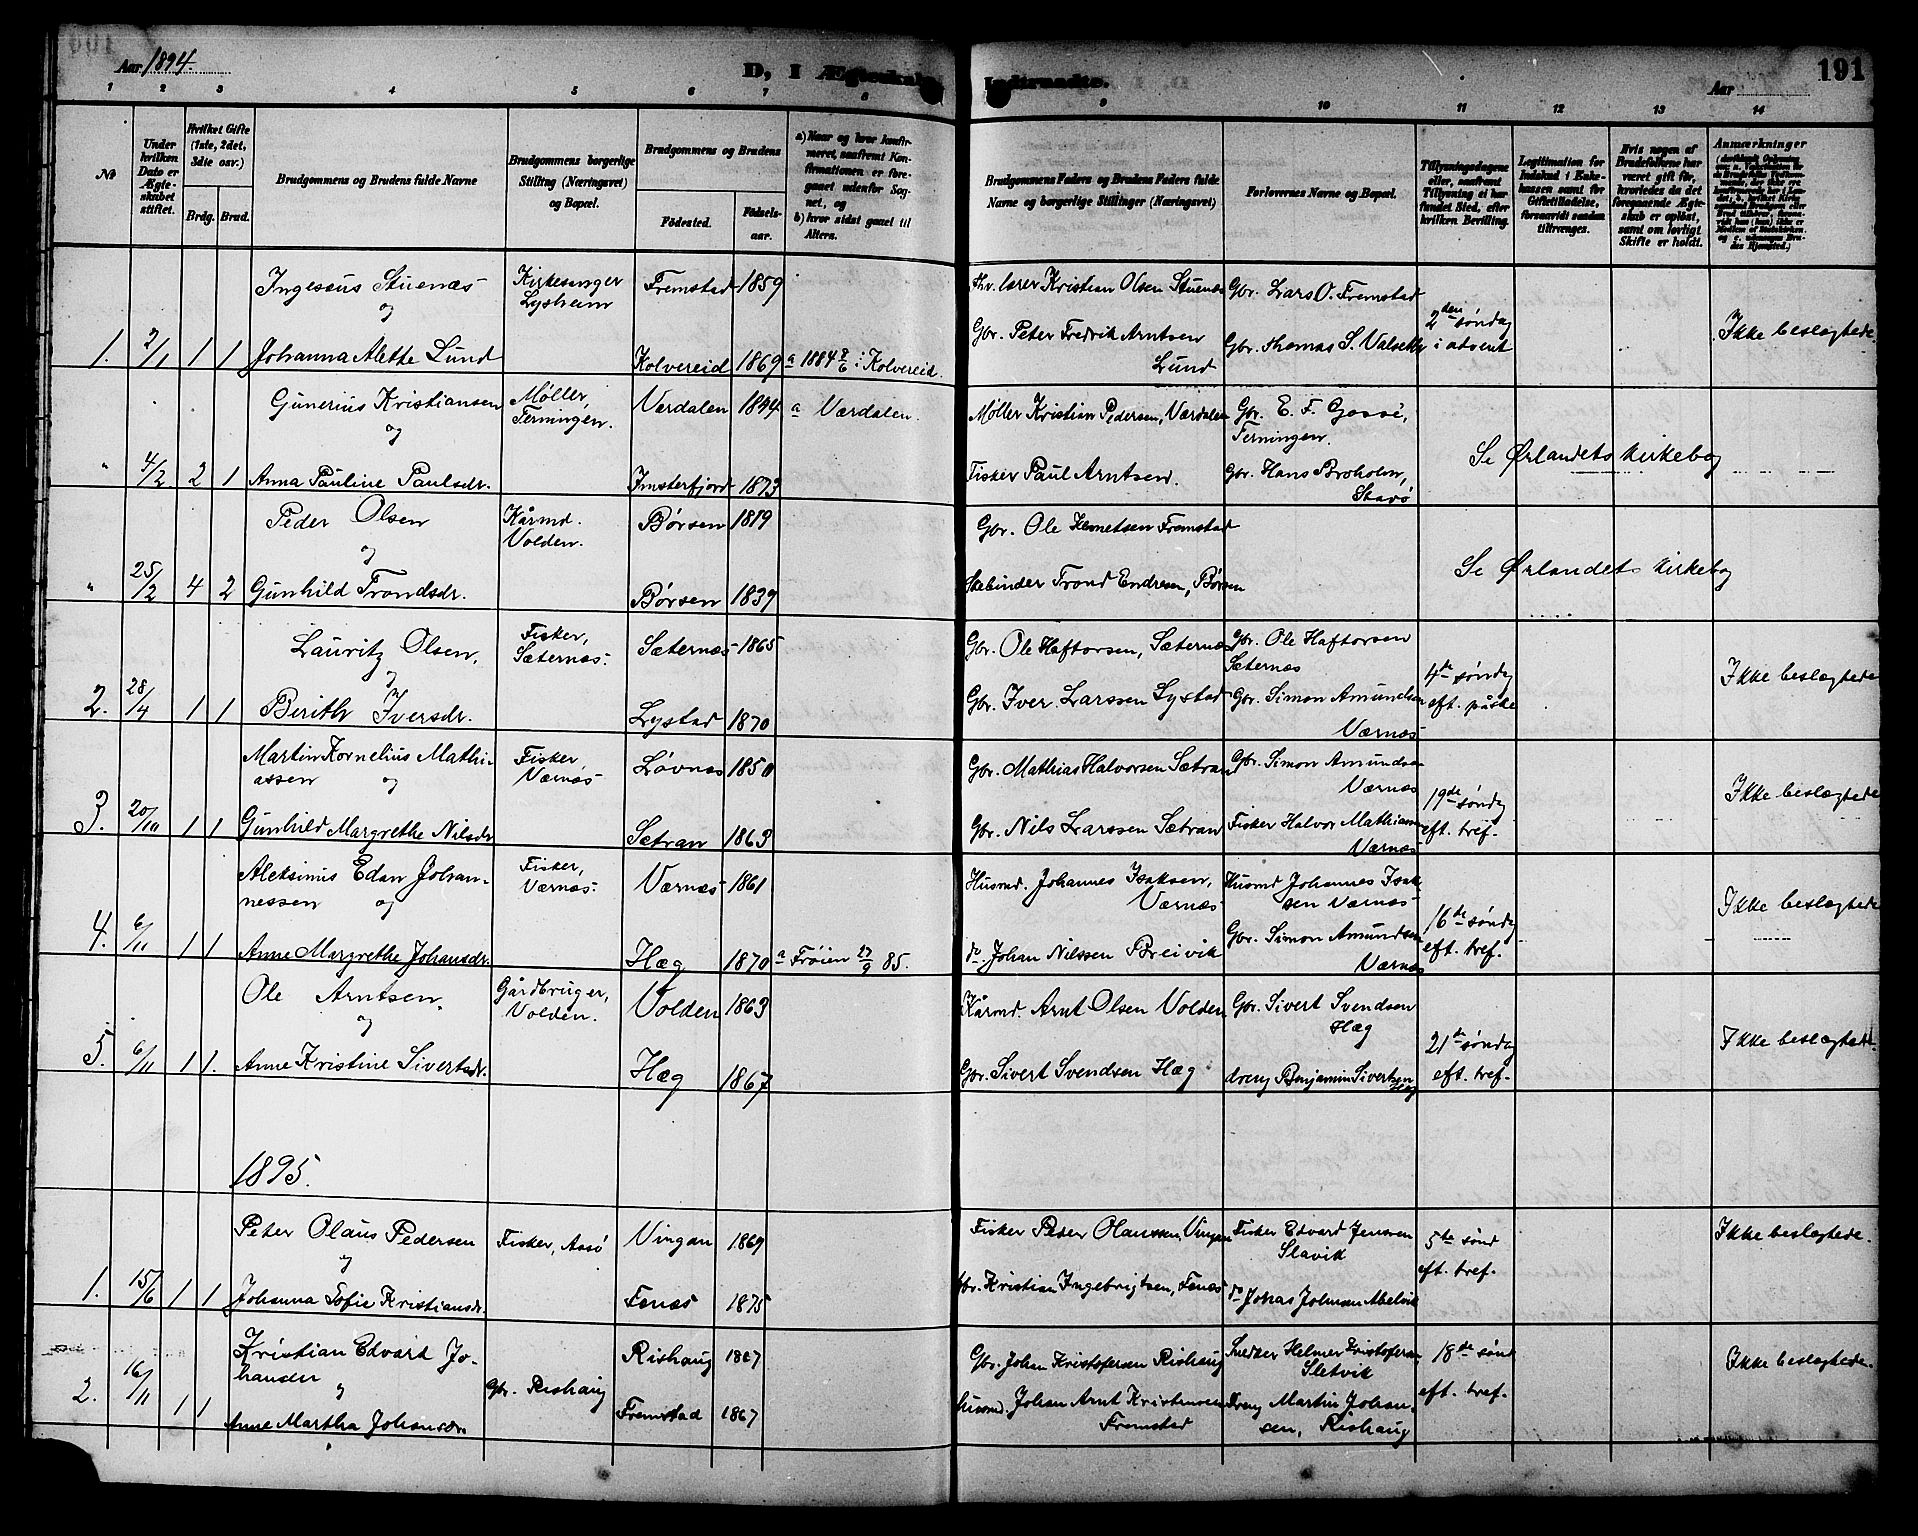 Aar 1894.
D, I Ægteskab Indtraadte.
Aar
191
1 2 3 4 5 6 7 8 9 10 11 12 13 14
No
Under hvilken Dato er Ægteskabet stiftet.
Hvilket Gifte (1ste, 2det, 3die osv.)
Brdg. Brud.
Brudgommens og Brudens fulde Navne
Brudgommens borgerlige Stilling (Næringsvei) og Bopæl.
Brudgommens og Brudens
Fødested. Fødselsaar.
a) Naar og hvor konfirmeret, saafremt Konfirmationen er foregaaet udenfor Sognet, og
b) hvor sidst gaaet til Alters.
Brudgommens Faders og Brudens Faders fulde Navne og borgerlige Stillinger (Næringsvei)
Forlovernes Navne og Bopæl.
Tillysningsdagene eller, saafremt Tillysning ei har fundet Sted, efter hvilken Bevilling.
Legitimation for Indskud i Enkekassen samt for Giftetilladelse, forsaavidt saadan tiltrænges.
Hvis nogen af Brudefolkene har været gift før, hvorledes da det foregaaende Ægteskab er opløst, samt om lovligt Skifte er holdt.
Anmærkninger
Ingessus Stuenæs Kirkesanger Lysheim Fremstad 1859 Kristian Olsen Stuenæs Gbr. Lars O. Fremstad
og
1. 2/1 1 1 Johanna Alette Lund Kolvereid 1869 a 1884 8/6 i Kolvereid. Gbr. Peter Fredrik Arntsen Lund Gbr. Thomas S. 2den søndag i advent Ikke beslægtede
Gunerius Kristiansen Møller, Terningen. Værdalen 1844 a Værdalen. Møller Kristian Pedersen, Værdalen Gbr. E. F. Terningen.
og
" 4/2 2 1 Anna Pauline Paulsdr. Imsterfjord 1873 Fisker Paul Arntsen. Gbr. Hans Broholm, Se Ørlandets kirkebog
Peder Olsen Kårmd. Volden. Børsen 1819 Gbr. Ole Fremstad
og
" 25/2 4 2 Gunhild Trondsdr. Børsen 1839 Trond Endresen, Børsen Se Ørlandets kirkebog
Lauritz Olsen, Fisker, Sæternæs. Sæternæs 1865 Gbr. Ole Haftorsen, Sæternæs Gbr. Ole Haftorsen Sæternæs
og
2. 28/4 1 1 Berith Iversdr. Lystad 1870 Gbr. Iver Larssen Lystad Gbr. Simon Amundsen Værnæs 4de søndag eft. påske Ikke beslægtede
Martin Kornelius Mathiassen Fisker, Værnæs. Løvnæs 1850 Gbr. Mathias Halvorsen Sætran Gbr. Simon Amundsen Værnæs
og
3. 20/10 1 1 Gunhild Margrethe Nilsdr Sætran 1863 Gbr. Nils Larssen Sætran Fisker Halvor Mathiassen Værnæs 19de søndag eft. tref. Ikke beslægtede
Aleksinus Edan Johannessen Fisker, Værnæs. Værnæs 1861 Husmd. Johannes Isaksen, Værnæs Husmd Johannes Isaksen Værnæs
og
4. 6/11 1 1 Anne Margrethe Johansdr. Hæg 1870 a Frøien 27/9 85. do. Johan Nilssen Breivik Gbr. Simon Amundsen Værnæs 16de søndag eft. tref. Ikke beslægtede
Ole Arntsen Gårdbruger, Volden. Volden 1863 Kårmd. Arnt Olsen Volden Gbr. Sivert Svendsen Hæg
og
5. 6/11 1 1. Anne Kristine Sivertsdr. Hæg 1867 Gbr. Sivert Svendsen Hæg dreng Benjamin Sivertsen Hæg 21de søndag eft. tref. Ikke beslægtede
1895.
Peter Olaus Pedersen Fisker, Assø Vingan 1869 Fisker Peder Olaussen, Vingan Fisker Edvard Jenssen Slavik
og
1. 15/6 1 1 Johanna Sofie Kristiansdr. Fenæs 1875 Gbr. Kristian Ingebrigtsen, Fenæs do Johas Johnsen Abelvik 5te sønd eft. tref. Ikke beslægtede.
Kristian Edvart Johansen Gbr. Rishaug Rishaug 1867 Gbr. Johan Kristofersen Rishaug Snedker Helmer Kristofersen Sletvik
og
2. 16/11 1 1 Anne Martha Johansdr. Fremstad 1867 Husmd. Johan Arnt Kristensen Fremstad Dreng Martin Johansen, Rishaug 18de sønd eft. tref. Ikke beslægtede.